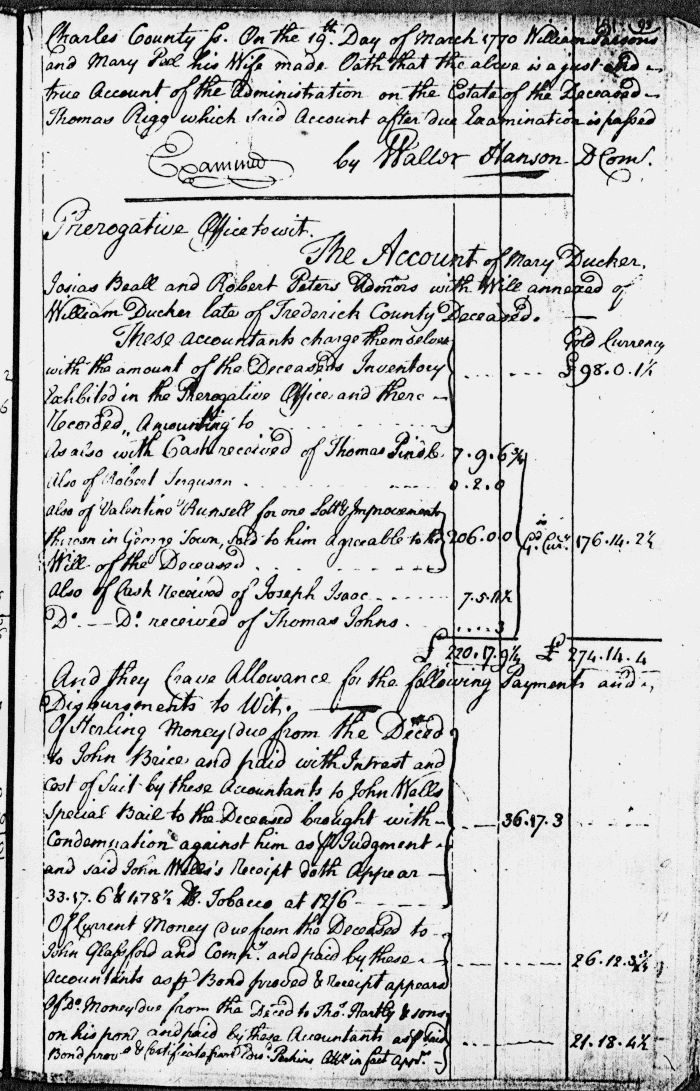 Charles County ss. On the 19th. Day of March 1770 William Parsons
and Mary his Wife made Oath that the above is a just and
true Account of the Administration on the Estate of the Deceased
Thomas Rigg which said Account after due Examination is passed
Examined by Walter Hanson D Comy.
Prerogative Office to wit.
The Account of Mary Ducker,
Josias Beall and Robert Peters Admors with Will annexed of
William Ducker late of Frederick County Deceased.
These accountants charge themselves
Gold Currency
with the amount of the Deceaseds Inventory £98.0.1½
Exhibited in the Prerogative Office and there
Recorded, Amounting to
As also with Cash received of Thomas 7.9.6¾
Also of Robert Ferguson 0.2.0
also of Valentine for one Lott & Improvements
thereon in George Town, Sold to him agreeable to the 206.0.0 176.14.2½
Will of the Deceased
Also of Cash received of Joseph Isaac 7.5.11½
Do. Do. received of Thomas Johns 3
£ 220.17.9¼ £ 274.14.4
And they Crave Allowance for the following Payments and
Disbursments to Wit.
Of Sterling Money due from the Deced
to John Brice and paid with Intrest and
Cost of Suit by these Accountants to John Wells
Special Bail to the Deceased brought with 36.17.3
Condemnation against him as p Judgment
and said John Wells's Receipt doth Appear
33.17.6 & 478½ lb. Tobacco at 12/6
Of Current Money due from the Deceased to
John Glassford and Compy. and paid by these 26.12.
Accountants as p Bond proved & Receipt appears
Of Do. Money due from the Deced to Thos. Hartly & sons
on his and paid by these Accountants as p said 21.18.4½
Bond & Certificate from Perkins in fact